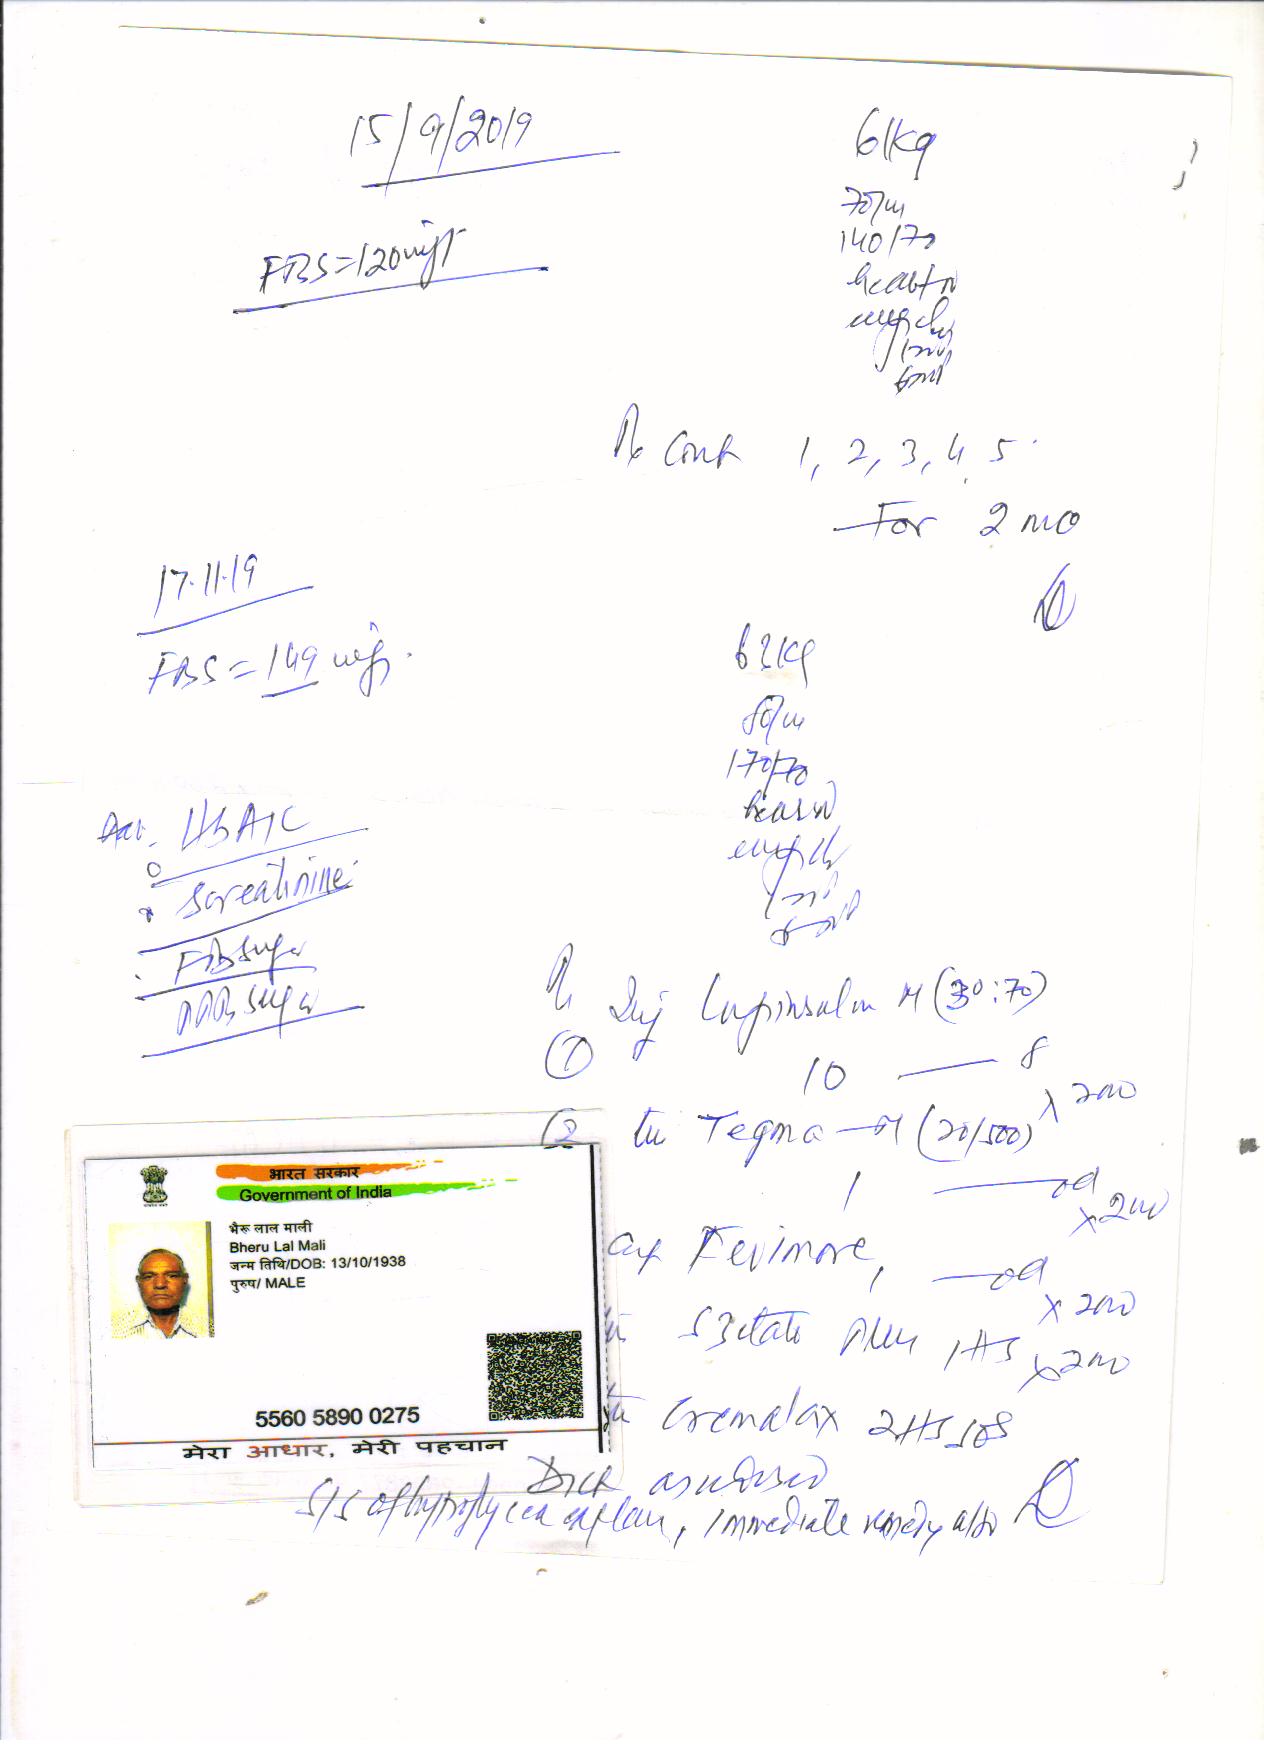 15/9/2019
61kg
FBS=120mg%
70/m
140/70
Rx Cont 1, 2, 3, 4, 5
For 2 mo
17.11.19
FBS = 149 mg%
62kg
80/m
170/70
Adv. HBA1C
S creatinine
FBSugar
PPBSugar
Rx
① Inj Lupinsulin M (30:70)
10 — 8
x 2mo
② Tegma-M (20/500)
1 — od
x 2mo
cap Fevimore, — od
x 2mo
1HS
x 2mo
Cremalax 2HS SOS
Diet as advised
S/S of hypoglycemia explain, immediate remedy also
भारत सरकार
Government of India
भैरू लाल माली
Bheru Lal Mali
जन्म तिथि/DOB: 13/10/1938
पुरुष/ MALE
5560 5890 0275
मेरा आधार, मेरी पहचान